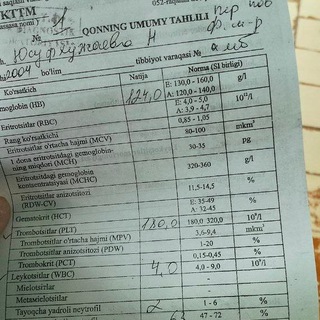 KTTM
QONNING UMUMY TAHLILI
№
2004 bo'lim tibbiyot varaqasi №
Ko'rsatkich Natija Norma (SI birligi)
moglobin (HB) 124,0 E: 130,0 - 160,0 g/l
A: 120,0 - 140,0
Eritrotsitlar (RBC) E: 4,0 - 5,0 10¹²/l
A: 3,9 - 4,7
Rang ko'rsatkichi 0,85 - 1,05
Eritrotsitlar o'rtacha hajmi (MCV) 80-100 mkm³
1 dona eritrotsitdagi gemoglobin-
ning miqdori (MCH) 30-35 pg
Eritrotsitdagi gemoglobin
konsentratsiyasi (MCHC) 320-360 g/l
Eritrotsitlar anizotsitozi
(RDW-CV) 11,5-14,5 %
Gemotokrit (HCT) E: 35-49 %
A: 32-45
Trombotsitlar (PLT) 180,0 180,0 320,0 10⁹/l
Trombotsitlar o'rtacha hajmi (MPV) 3,6-9,4 mkm³
Trombotsitlar anizotsitozi (PDW) 1-20 %
Trombokrit (PCT) 0,15-0,45 %
Leykotsitlar (WBC) 4,0 4,0 - 9,0 10⁹/l
Mielotsitlar
Metamielotsitlar %
Tayoqcha yadroli neytrofil 2 1 - 6 %
63 47 - 72 %